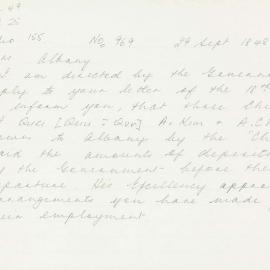 49
155. No 969 29 Sept 1848
Albany
I am directed by the Governor
reply to your letter of the 18th
inform you, that those
Quei [Quei = Quo] A. Kim & A.
to Albany by the
paid the amounts of deposit
by the Government before
departure. His Excellency
arrangements you have made
employment